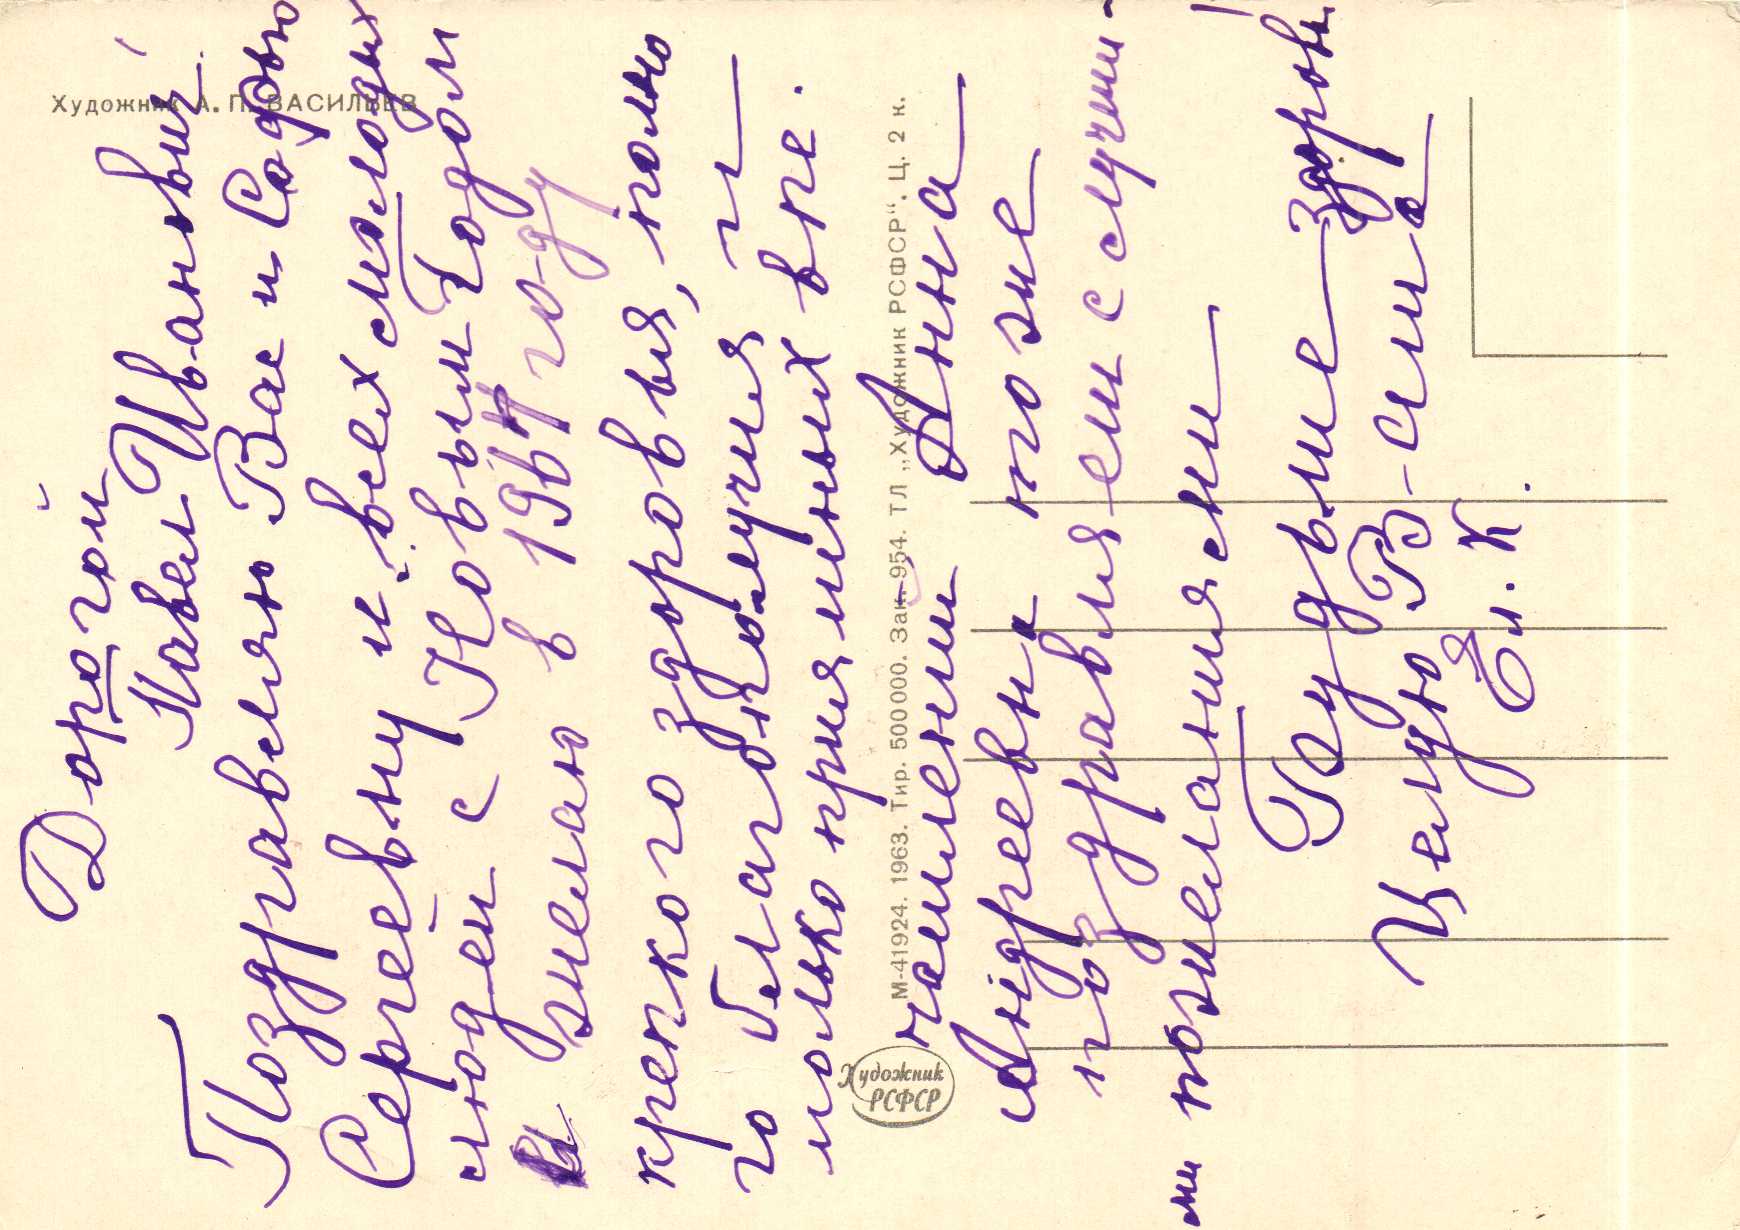 Художник А. П. ВАСИЛЬЕВ
Дорогой
Павел Иванович!
Поздравляю Вас и Софью
Сергеевну и всех молодых
людей с Новым Годом
и желаю в 1964 году
крепкого здоровья, полно
го благополучия и
только приятных впе.
чатлений Анна
Андреевна тоже
поздравляет с лучши-
ми пожеланиями
Будьте здоровы!
Целую В-сила
Ел. К.
М-41924. 1963. Тир. 500000. Зак. 954. ТЛ „Художник РСФСР“. Ц. 2 к.
Художник
РСФСР